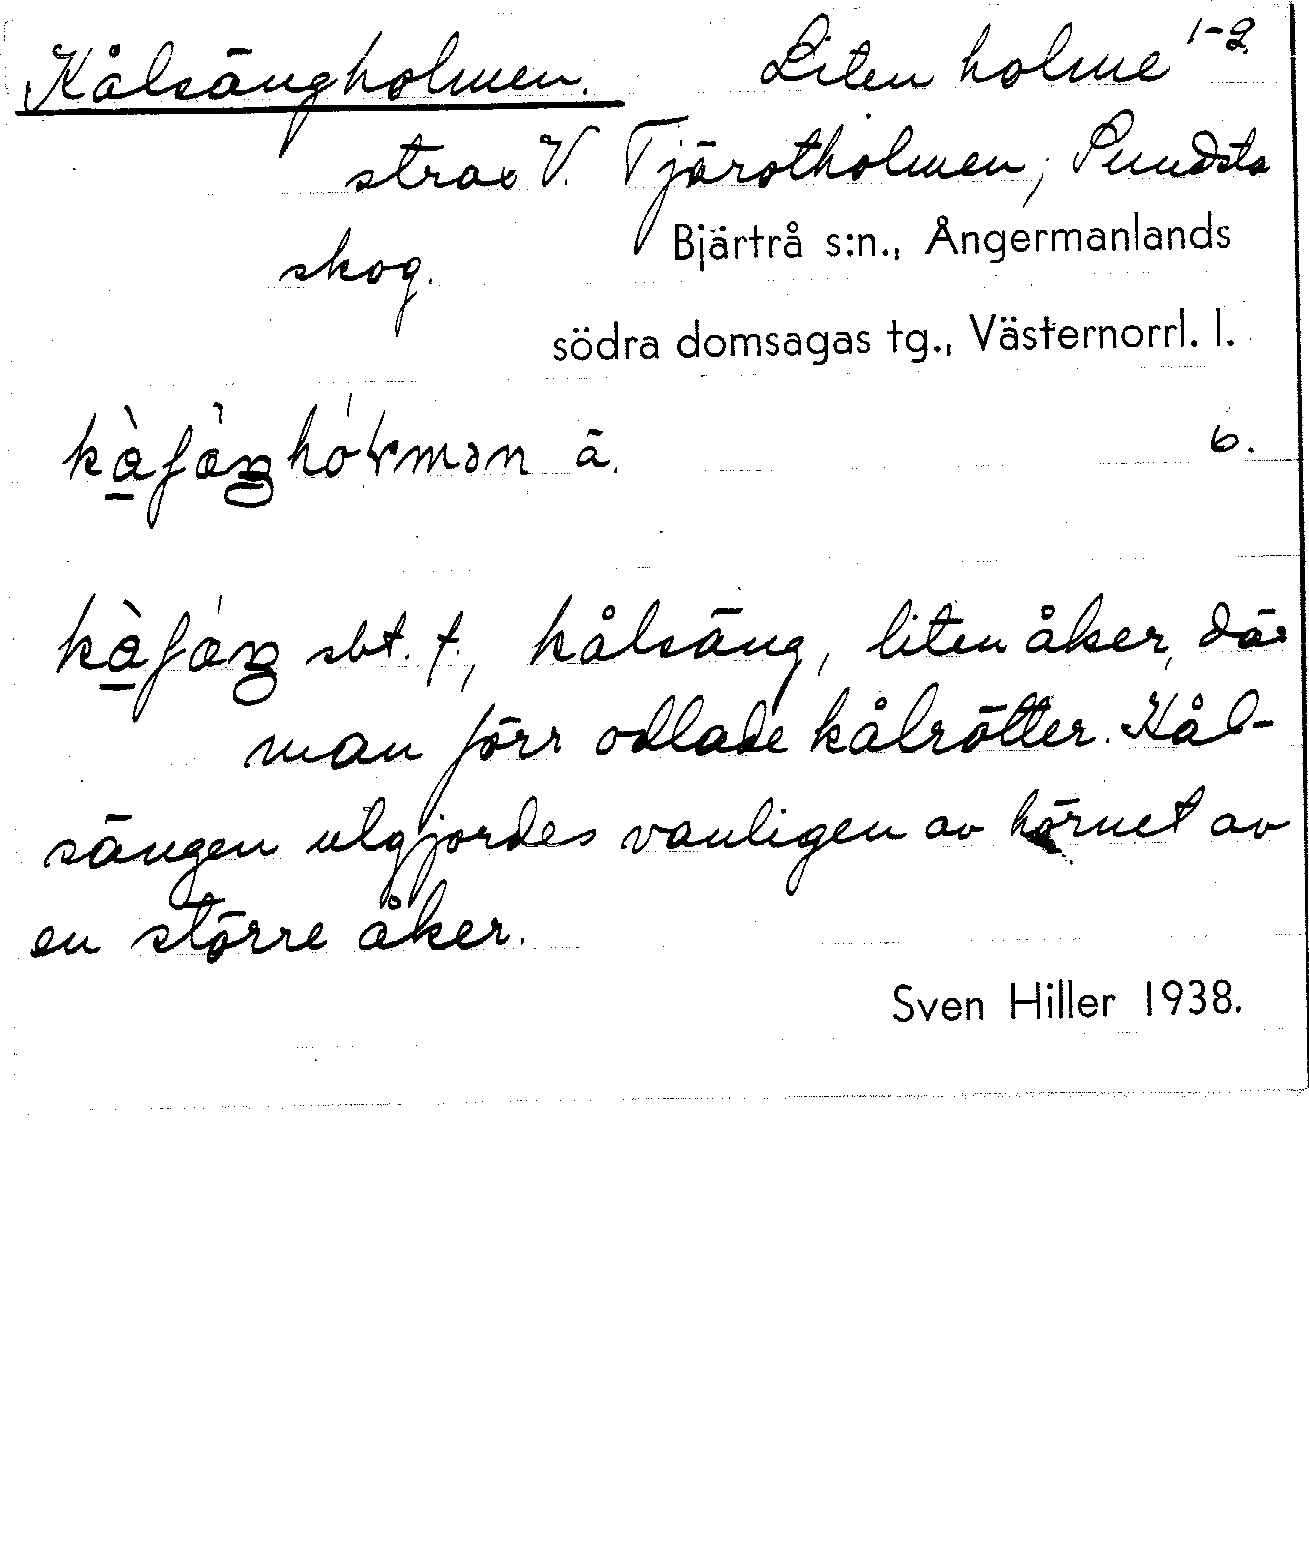 Kålsängholmen. Liten holme 1-2
strax V. Tjärotholmen, Pundsta
skog. Bjärtrå s:n., Ångermanlands
södra domsagas tg., Västernorrl. l.
ä. b.
sbt. f., kålsäng, liten åker, där
man förr odlade kålrötter. Kål-
sängen utgjordes vanligen av hörnet av
en större åker.
Sven Hiller 1938.